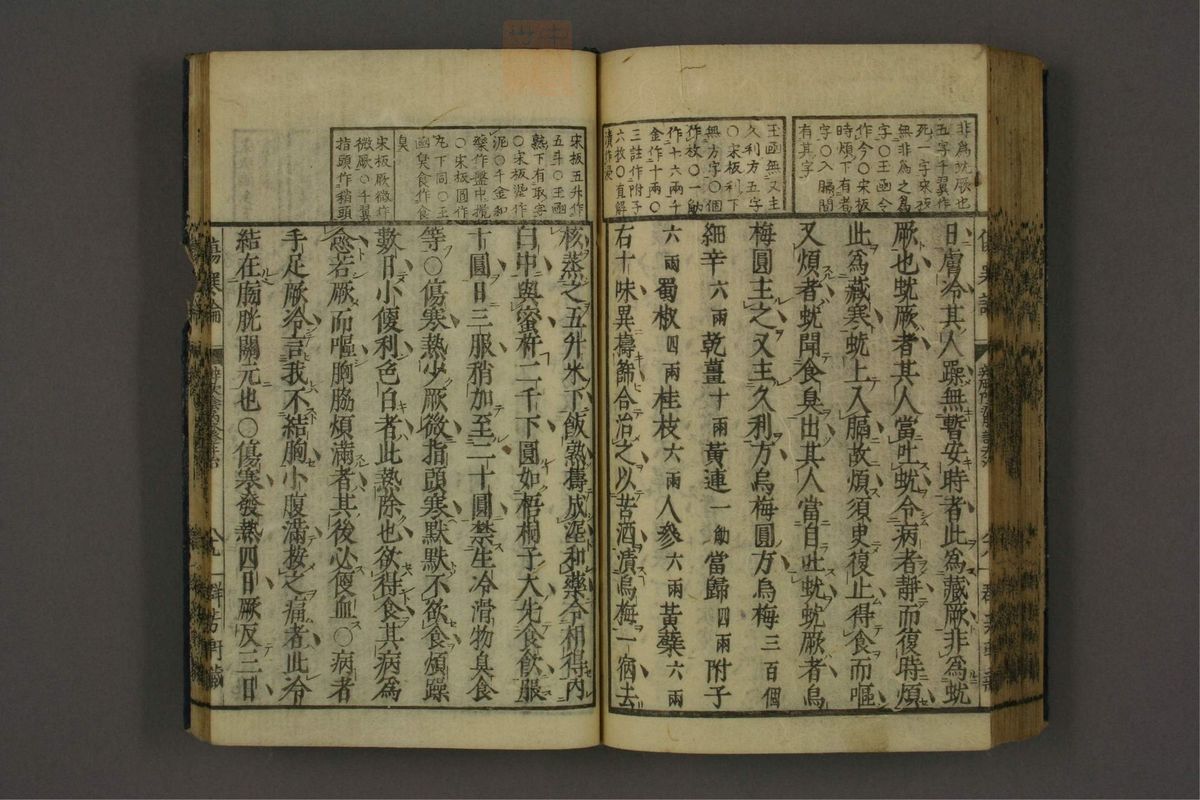 非為蚘厥也
五字千翼作
死一字來夜
無非為之為
字○王函令
作今○宋板
時煩下有者
字○入膈間
有其字
日膚冷其人躁無暫安時者此為藏厥非為蚘
厥也蚘厥者其人當吐蚘令病者靜而復時煩
此為藏寒蚘上入膈故煩須臾復止得食而嘔
又煩者蚘聞食臭出其人當自吐蚘蚘厥者烏
梅圓主之又主久利方烏梅圓方烏梅三百個
細辛六兩乾薑十兩黃連一觔當歸四兩附子
六兩蜀椒四兩桂枝六兩人參六兩黃蘗六兩
右十味異擣篩合治之以苦酒漬烏梅一宿去
王函無又主
久利方五字
○宋板利下
無方字○個
作枚○一觔
作十六兩千
金作十兩○
三註作附子
六枚○直解
漬作浸
宋板五升作
五斗○王函
熟下有取字
○宋板泥作
泥○千金和
藥作盤中攪
○宋板圓作
丸下同○王
函臭食作食
臭
宋板厥微作
微厥○千翼
指頭作稍頭
核蒸之五升米下飯熟擣成泥和藥令相得內
臼中與蜜杵二千下圓如梧桐子大先食飲服
十圓日三服稍加至二十圓禁生冷滑物臭食
等○傷寒熱少厥微指頭寒默默不欲食煩躁
數日小便利色白者此熱除也欲得食其病為
愈若厥而嘔胸脇煩滿者其後必便血○病者
手足厥冷言我不結胸小腹滿按之痛者此冷
結在膀胱關元也○傷寒發熱四日厥反三日
傷寒論